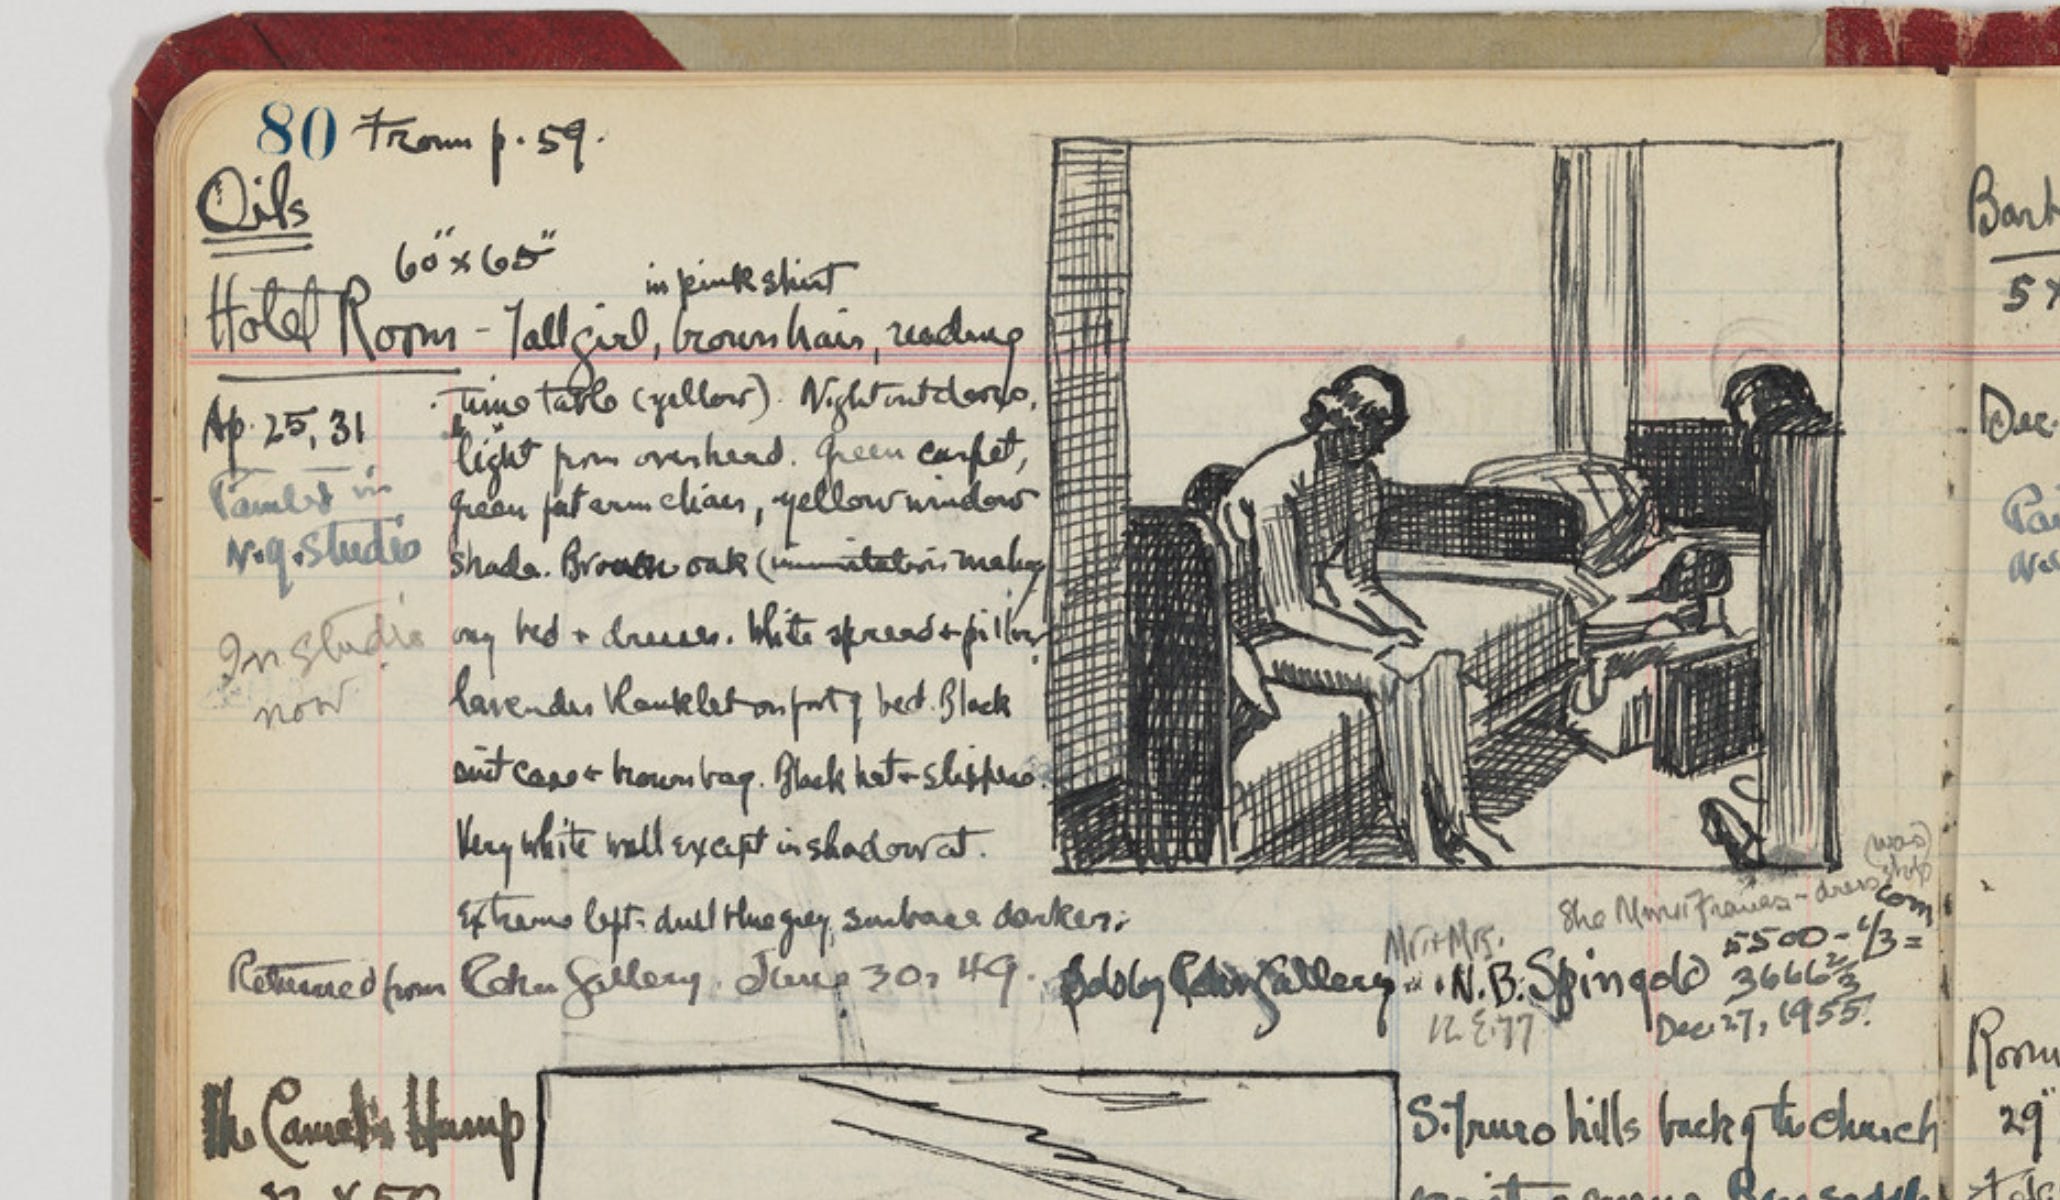 80 From p. 59.
Oils
60" x 65"
in pink shirt
Hotel Room - Tall girl, brown hair, reading
Ap. 25, 31
time table (yellow). Night out doors,
light from overhead. Green carpet,
Painted in
green fat arm chair, yellow window
N.Y. Studio
shade. Brown oak (immitation mahog
In studio
any bed + dresser. White spread + pillow
now
lavender blanklet on foot of bed. Black
suit case + brown bag. Black hat + slippers.
Very white wall except in shadow at
extreme left - dull blue grey, darker.
(was)
She Miss Frances - dress shop
Returned from Rehn Gallery. June 30, 49.
Sold by Rehn Gallery
Mr + Mrs.
N. B. Spingold
12 E. 77
com
5500 - 1/3 =
3666 2/3
Dec. 27, 1955.
The Camel's Hump
32 x 50
S. Truro hills back of the church
Bark
5 x
Dec.
Pai
N.Y.
Room
29"